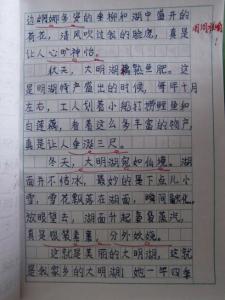 边婀娜多姿的垂柳和湖中盛开的
荷花，清风吹过我的脸庞，真是
让人心旷神怡。
秋天，大明湖藕熟鱼肥。这
是明湖特产盛出的时候，每年十月
左右，工人划着小船打捞鲤鱼和
白莲藕，看着这么多丰富的物产，
真是让人垂涎三尺。
冬天，大明湖宛如仙境。湖
面并不结冰，最妙的是下点儿小
雪，雪花飘落在湖面，瞬间融化，
放眼望去，湖面升起袅袅蒸汽，
真是银装素裹，分外妖娆。
这就是美丽的大明湖，这就
是我家乡的大明湖！她一年四季